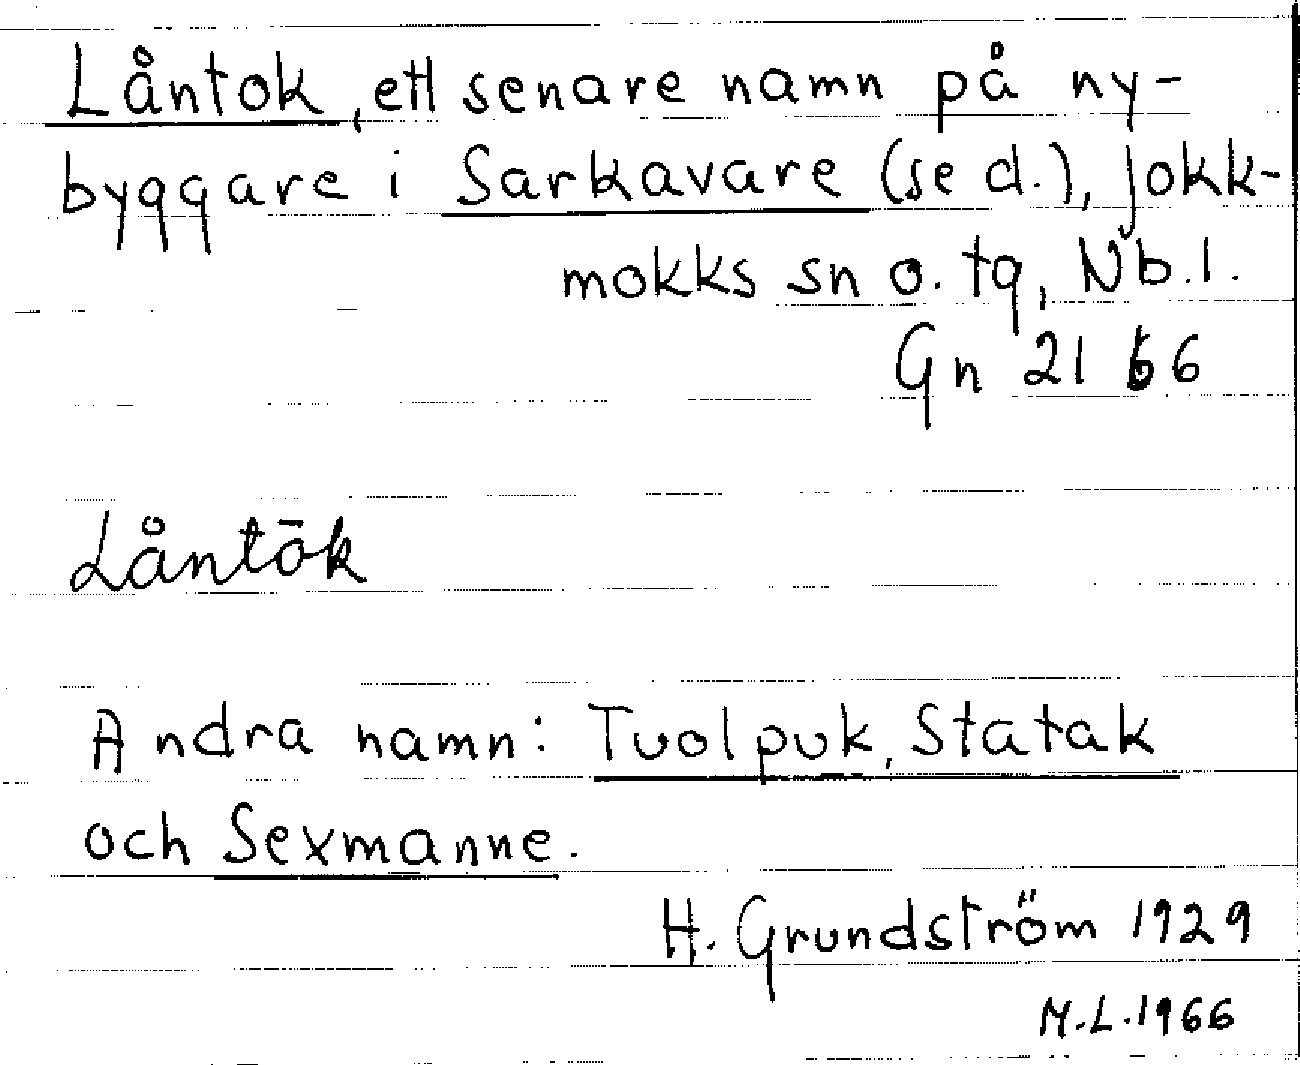 Låntok, ett senare namn på ny-
byggare i Sarkavare (se d.), Jokk-
mokks sn o. tg, Nb.l.
Gn 21 66
Låntōk
Andra namn: Tuolpuk, Statak
och Sexmanne.
H. Grundström 1929
M.L.1966